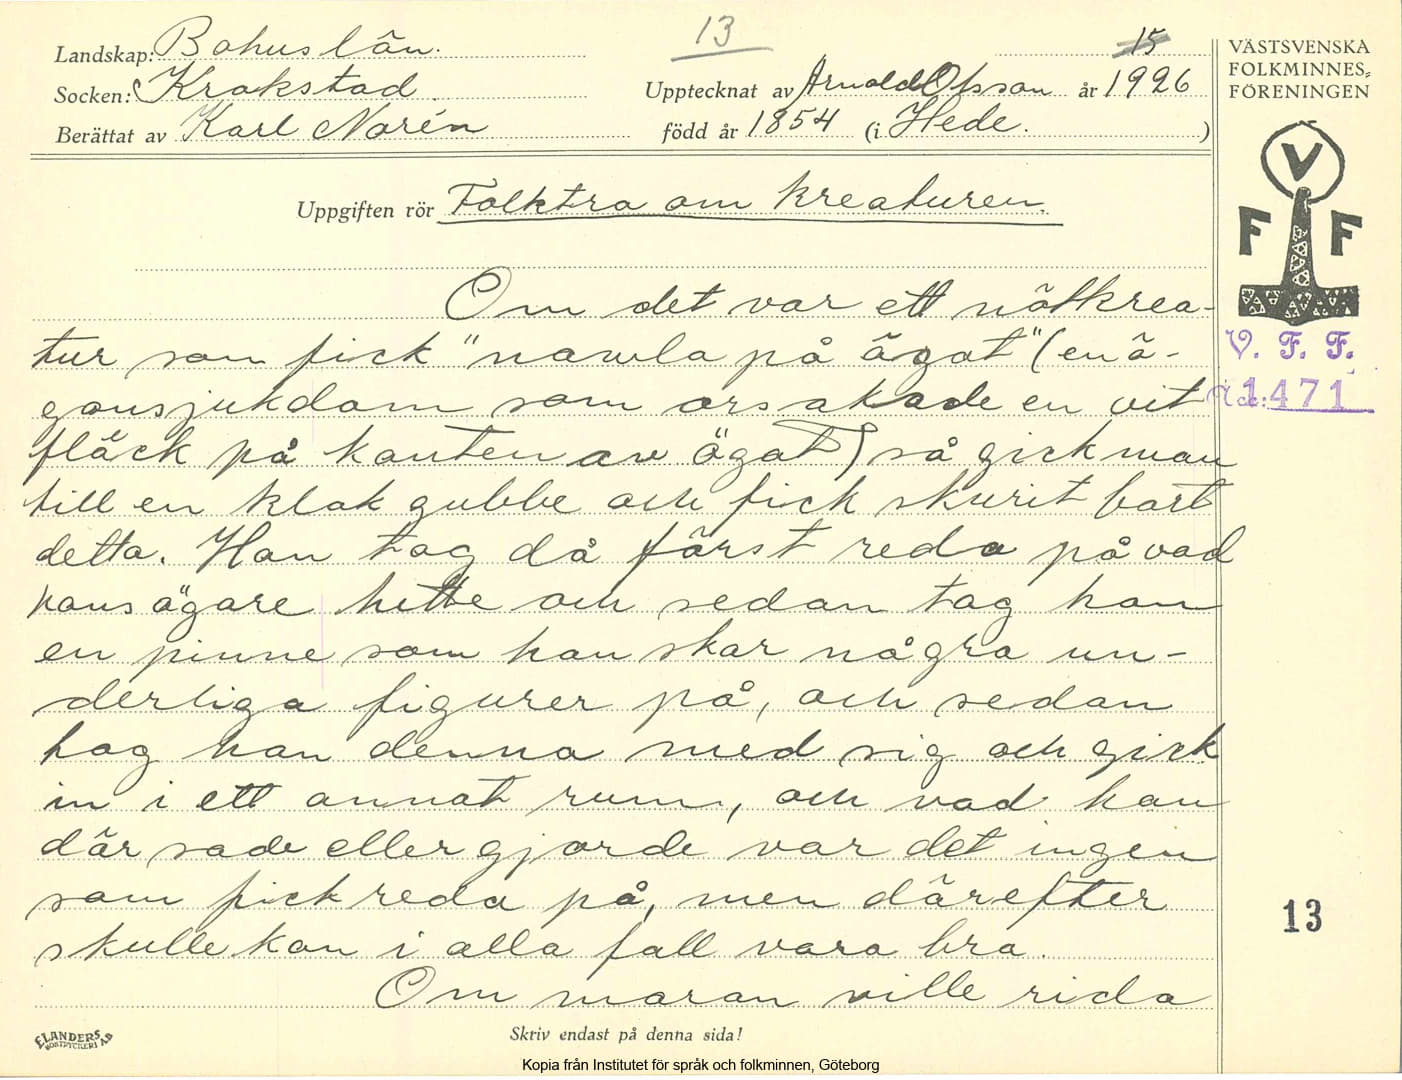 13
15
Landskap: Bohuslän.
Socken: Krokstad.
Upptecknat av Arnold Olsson år 1926
Berättat av Karl Norén född år 1854 (i Hede.)
VÄSTSVENSKA
FOLKMINNES-
FÖRENINGEN
V
F F
Uppgiften rör Folktro om kreaturen.
Om det var ett nötkrea-
tur som fick "navla på ägat" (en ö-
gonsjukdom som orsakade en vit
fläck på kanten av ögat) så gick man
till en klok gubbe och fick skurit bort
detta. Han tog då först reda på vad
kons ägare hette och sedan tog han
en pinne som han skar några un-
derliga figurer på, och sedan
tog han denna med sig och gick
in i ett annat rum, och vad han
där sade eller gjorde var det ingen
som fick reda på, men därefter
skulle kon i alla fall vara bra.
Om maran ville rida
V. F. F.
Acc: 1471
13
ELANDERS
BOKTRYCKERI AB
Skriv endast på denna sida!
Kopia från Institutet för språk och folkminnen, Göteborg